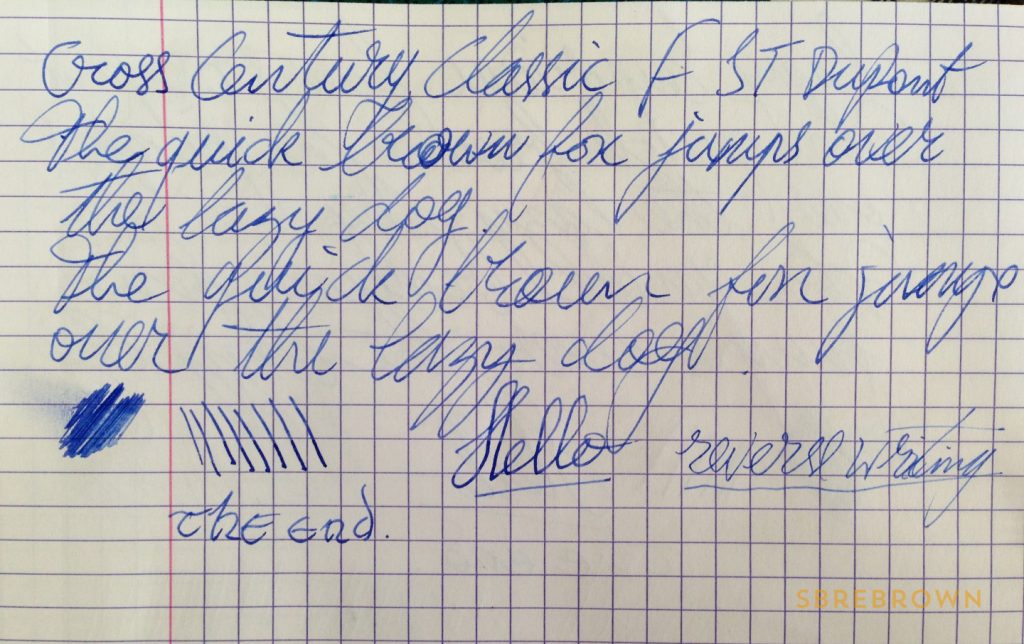 Cross Century Classic F ST Dupont
The quick brown fox jumps over
the lazy dog.
The quick brown fox jumps
over the lazy dog.
Hello reverse writing
the end.
SBREBROWN